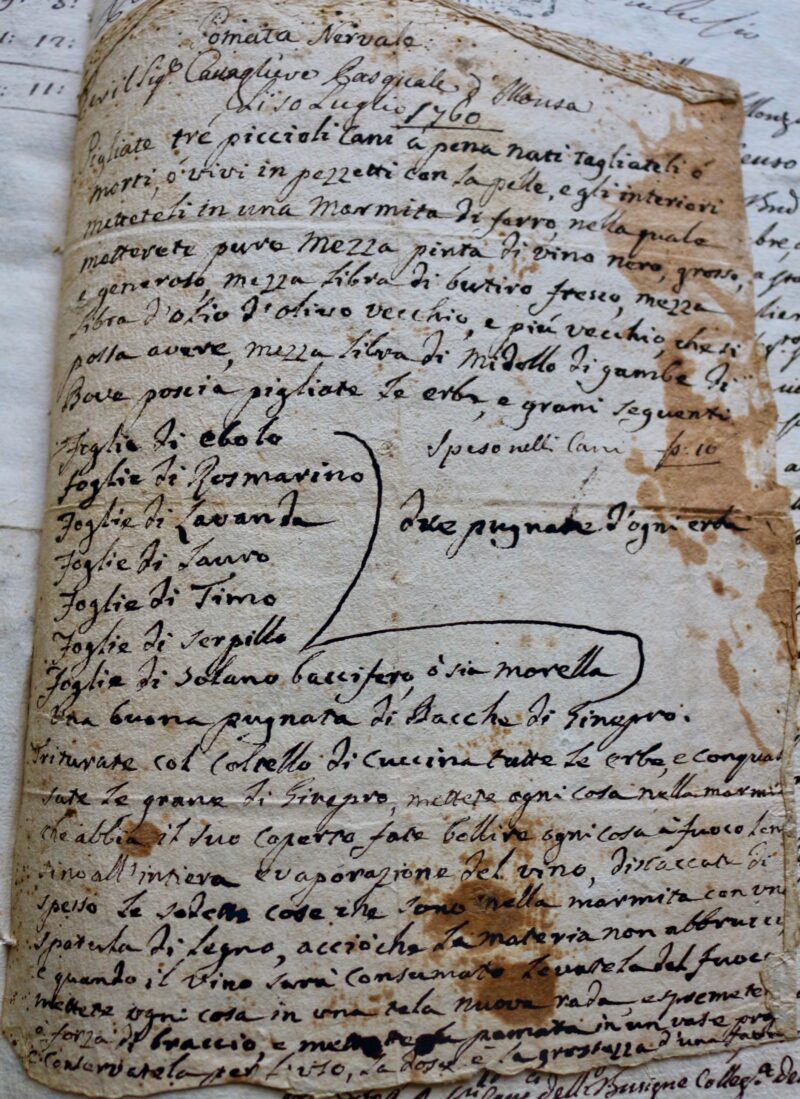 Pomata Nervale
Per il Sig.r Cavagliere Pasquale d'
Li 30 Luglio 1760
Pigliate tré piccioli Cani à pena nati tagliateli ó
morti, ó vivi in pezzetti con la pelle, e gli interiori
metteteli in una Marmita di ferro, nella quale
metterete pure mezza pinta di vino nero, grosso,
e generoso, mezza libra di butiro fresco, mezza
libra d'olio d'olivo vecchio, e più vecchio, che si
possa avere, mezza libra di Midollo di gambe di
Bove poscia pigliate le erbe, e grani seguenti
Foglie di ebolo
Speso nelli Cani
Foglie di Rosmarino
Foglie di Lavanda
due pugnate d'ogni erba
Foglie di Lauro
Foglie di Timo
Foglie di Serpillo
Foglie di Solano baccifero, ó sia morella
Una buona pugnata di Bacche di Ginepro.
Triturate col coltello di cuccina tutte le erbe, e conquas
sate le grane di Ginepro, mettete ogni cosa nella marmi
che abbia il suo coperto fate bollire ogni cosa à fuoco len
sino all'intiera evaporazione del vino, distaccate di
spesso le sodette cose che sono nella marmita con un
spatula di legno, acciò che la materia non abbrucci
e quando il vino sarà consumato levatela del fuoco
mettete ogni cosa in una tela nuova rada, e spremete
a forza di braccio, e mettete la pomata in un vase
Conservatela per l'uso, la dose è la grossezza d'una